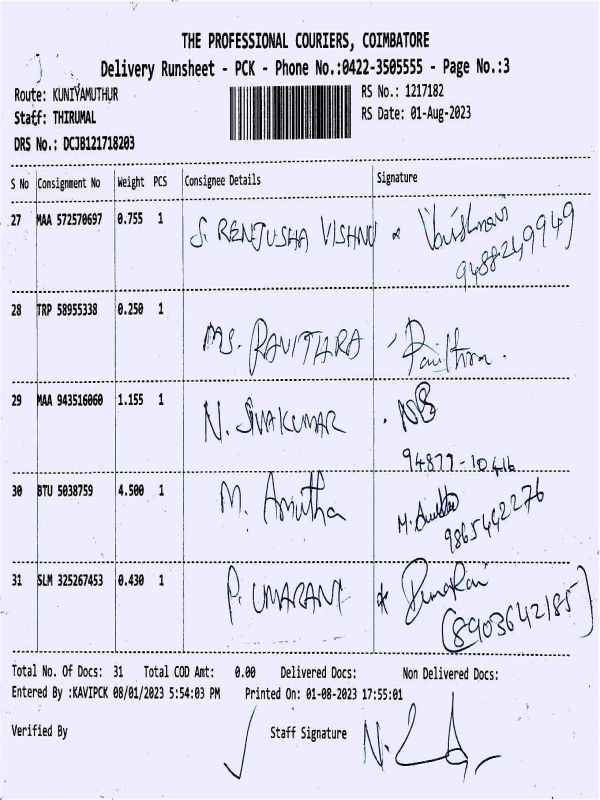 THE PROFESSIONAL COURIERS, COIMBATORE
Delivery Runsheet - PCK - Phone No.:0422-3505555 - Page No.:3
Route: KUNIYAMUTHUR RS No.: 1217182
Staff: THIRUMAL RS Date: 01-Aug-2023
DRS No.: DCJB121718203
S No Consignment No Weight PCS Consignee Details Signature
27 MAA 572570697 0.755 1 S. RENJUSHA VISHNU Vaishnavi
9488249949
28 TRP 58955338 0.250 1 MS. PAVITHRA Pavithra.
29 MAA 943516060 1.155 1 N. SIVAKUMAR
94877-10416
30 BTU 5038759 4.500 1 M. Amutha M. Amutha
9865442276
31 SLM 325267453 0.430 1 P. UMARANI
(8903642185)
Total No. Of Docs: 31 Total COD Amt: 0.00 Delivered Docs: Non Delivered Docs:
Entered By :KAVIPCK 08/01/2023 5:54:03 PM Printed On: 01-08-2023 17:55:01
Verified By Staff Signature